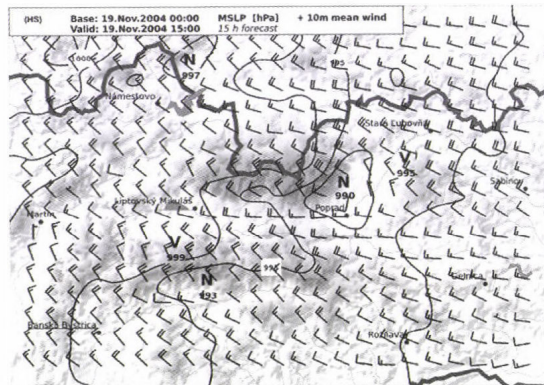 (HS) Base: 19.Nov.2004 00:00 MSLP [hPa] + 10m mean wind
Valid: 19.Nov.2004 15:00 15 h forecast
1000
N
997
995
Námestovo
Stará Ľubovňa
V
995
N
990
Sabinov
Liptovský Mikuláš
Poprad
Martin
V
999
995
N
993
Gelnica
Banská Bystrica
Rožňava